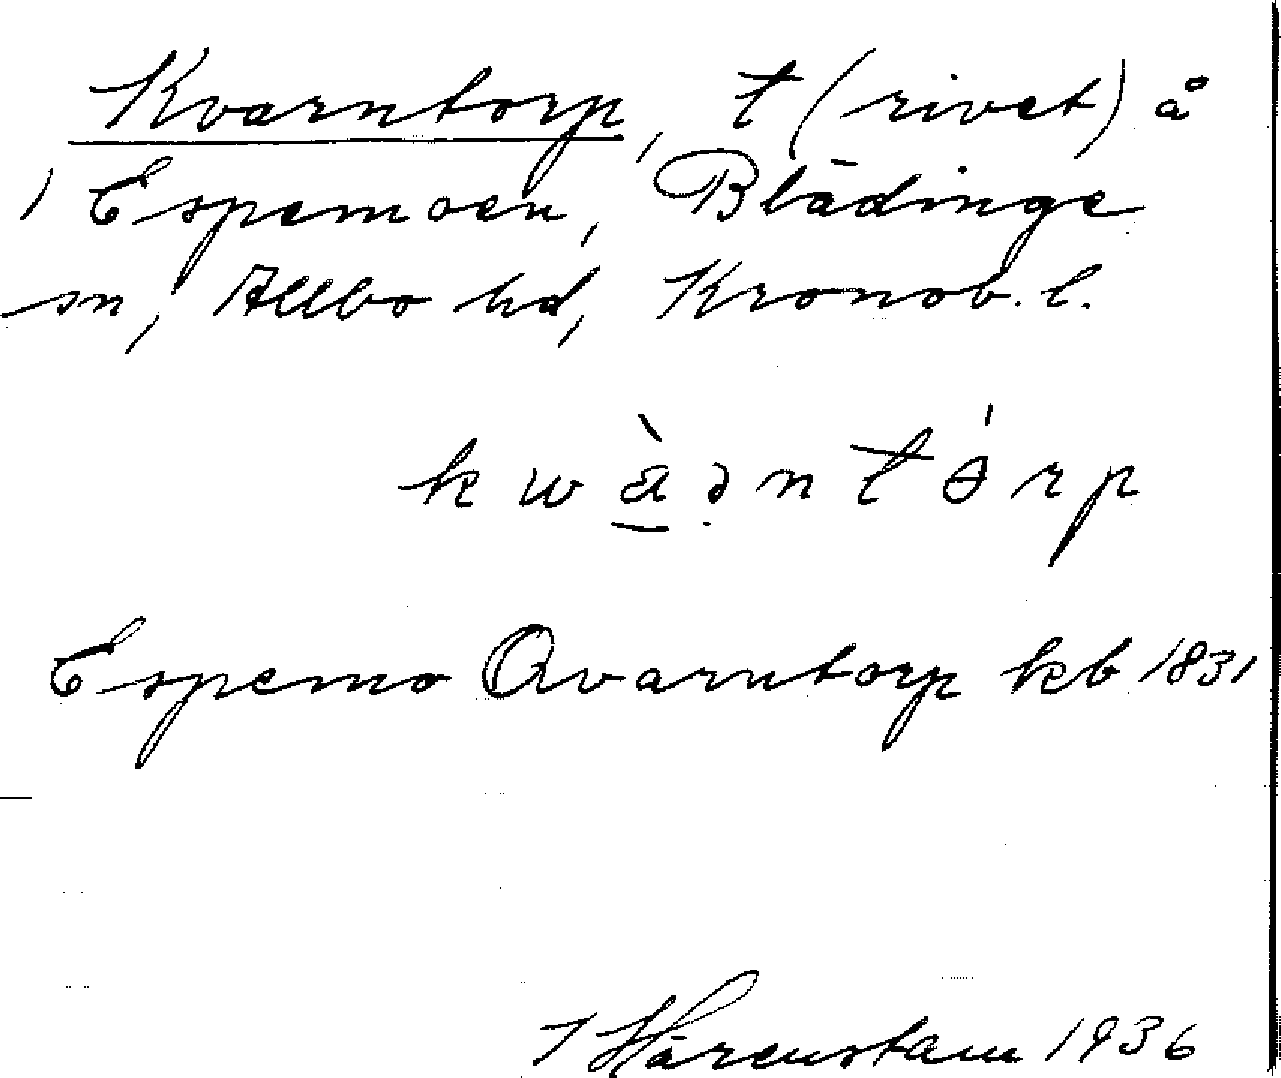 Kvarntorp, t (rivet) å
1 Espemoen, Blädinge
sn, Allbo hd, Kronob. l.
Espemo Qvarntorp kb 1831
Härenstam 1936